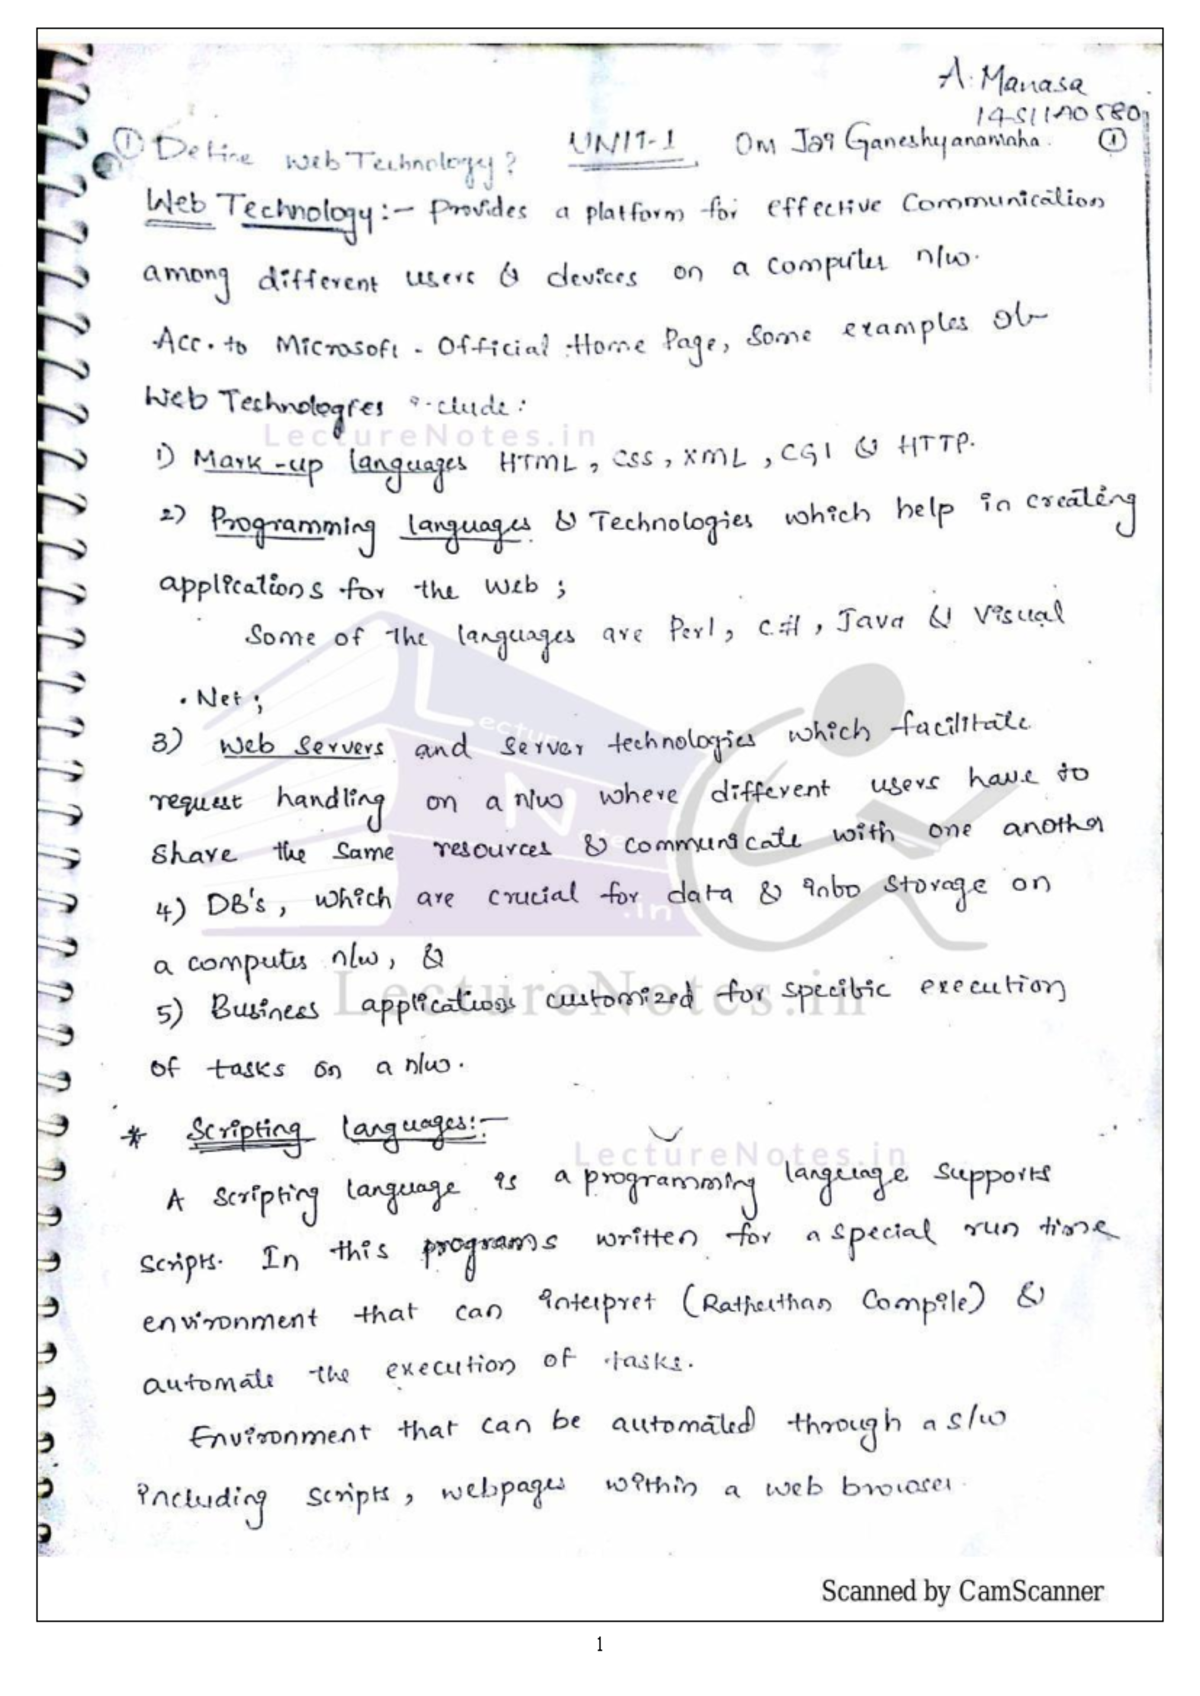 A. Manasa
14-511A0580
① Define Web Technology? UNIT-1 Om Jai Ganeshyanamaha. ①
Web Technology:- Provides a platform for effective Communication
among different users & devices on a computer n/w.
Acc. to Microsoft - Official Home Page, Some examples of
Web Technologies include:
LectureNotes.in
1) Mark-up languages HTML, CSS, XML, CGI & HTTP.
2) Programming languages & Technologies which help in creating
applications for the web;
Some of the languages are Perl, C#, Java & Visual
.Net;
3) Web Servers and Server technologies which facilitate
request handling on a n/w where different users have to
Share the Same resources & communicate with one another
4) DB's, which are crucial for data & info Storage on
a computer n/w, &
LectureNotes.in
5) Business applications customized for specific execution
of tasks on a n/w.
* Scripting languages:-
LectureNotes.in
A Scripting language is a programming language supports
scripts. In this programs written for a special run time
environment that can interpret (Rather than Compile) &
automate the execution of tasks.
Environment that can be automated through a s/w
including scripts, webpages within a web browser.
Scanned by CamScanner
1